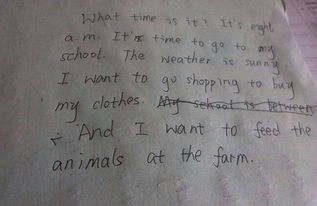 What time is it? It's eight
a.m. It's time to go to my
school. The weather is sunny
I want to go shopping to buy
my clothes. My school is between
And I want to feed the
animals at the farm.